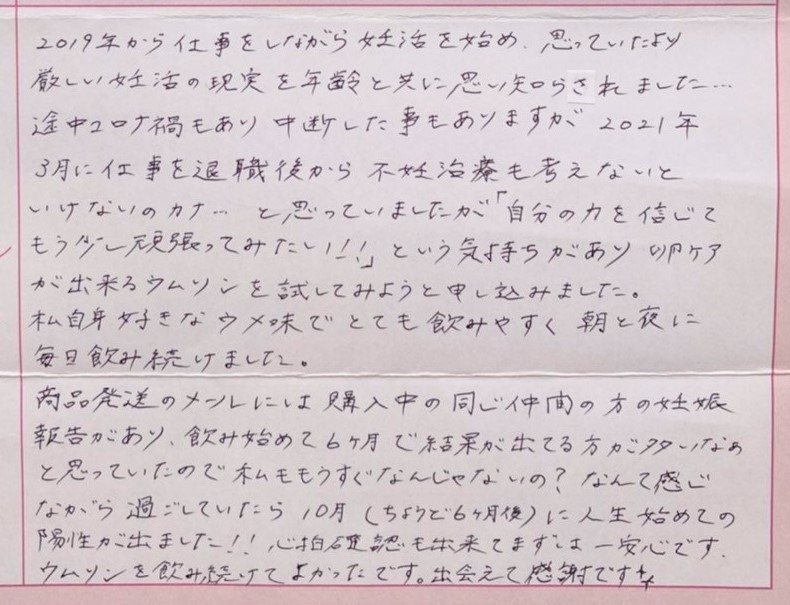 2019年から仕事をしながら妊活を始め、思っていたより
厳しい妊活の現実を年齢と共に思い知らされました…
途中コロナ禍もあり中断した事もありますが 2021年
3月に仕事を退職後から不妊治療も考えないと
いけないのカナ… と思っていましたが「自分の力を信じて
もう少し頑張ってみたい!!」という気持ちがあり 卵ケア
が出来るウムソンを試してみようと申し込みました。
私自身好きなウメ味でとても飲みやすく 朝と夜に
毎日飲み続けました。
商品発送のメールには購入中の同じ仲間の方の妊娠
報告があり、飲み始めて6ヶ月で結果が出てる方が多いなぁ
と思っていたので私ももうすぐなんじゃないの? なんて感じ
ながら過ごしていたら 10月(ちょうど6ヶ月後)に人生始めての
陽性が出ました!! 心拍確認も出来てまずは一安心です。
ウムソンを飲み続けてよかったです。出会えて感謝です